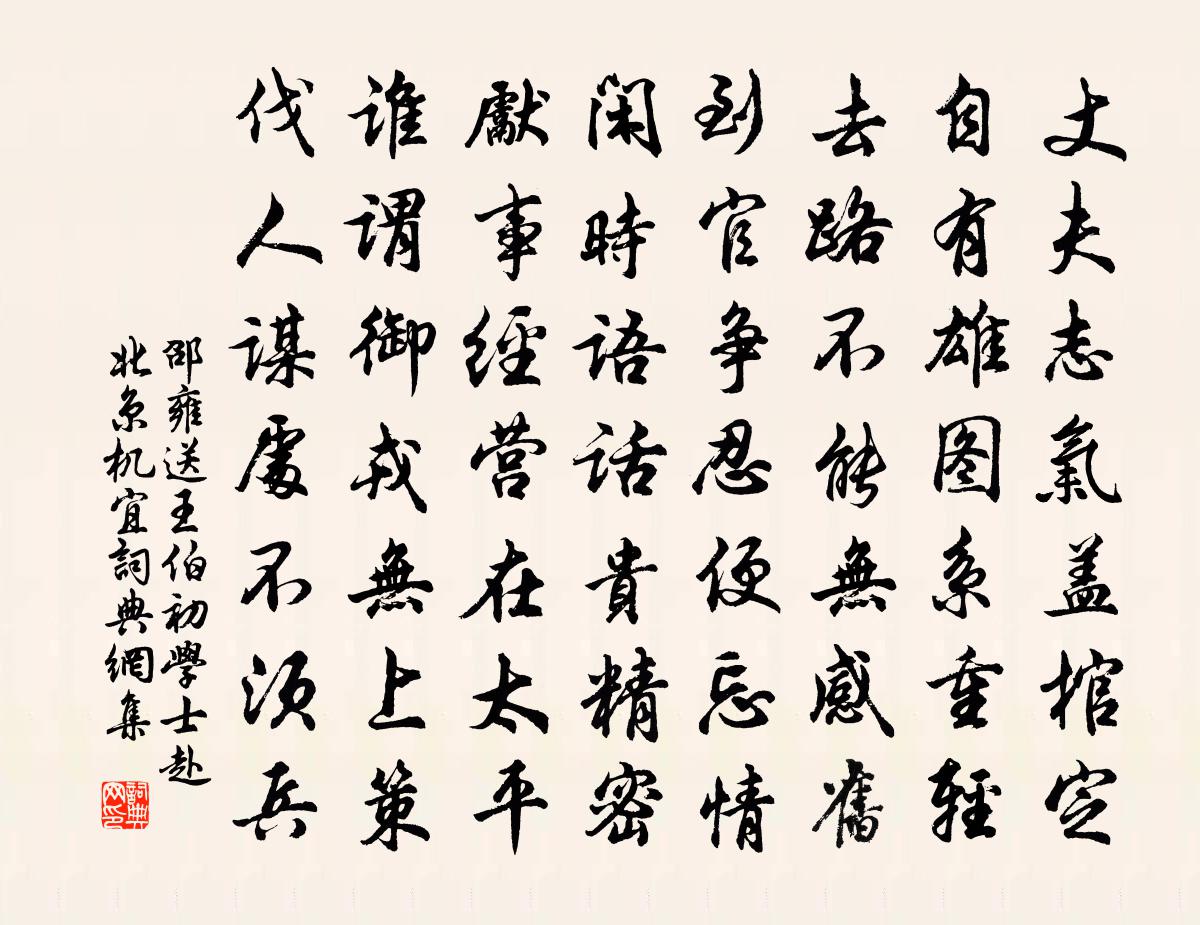 丈夫志氣盖棺定
自有雄图系重輕
去路不能無感舊
到官争忍便忘情
閑時語話貴精密
獻事經营在太平
誰謂御戎無上策
伐人謀處不須兵
邵雍送王伯初學士赴
北京机宜詞典網集
詞典
网印